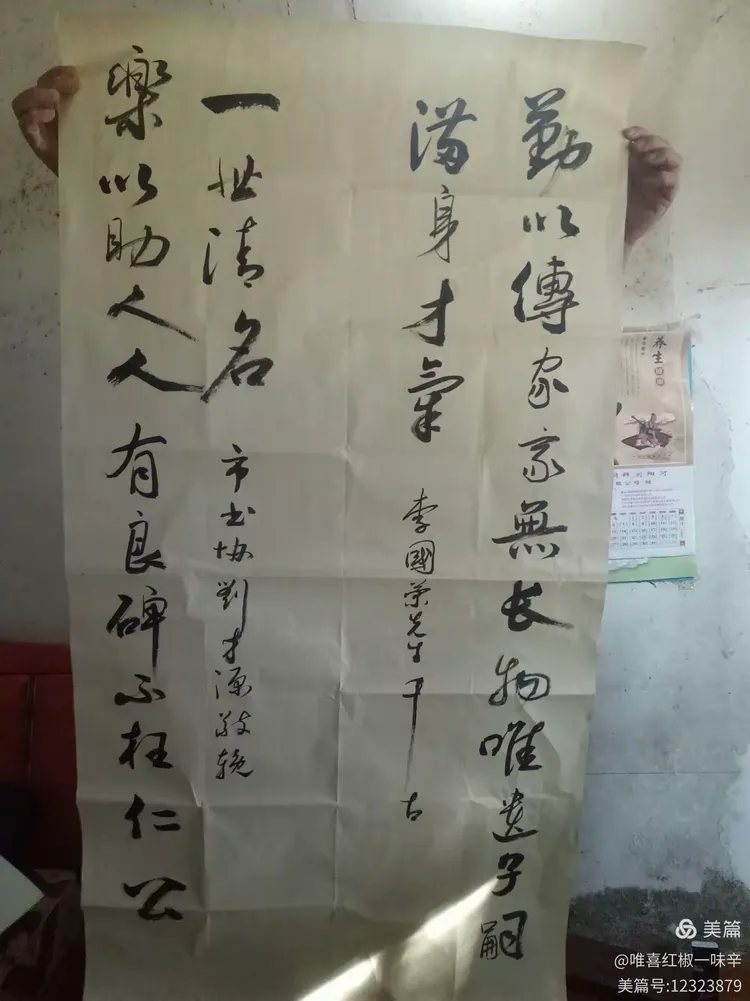 勤以傳家家無长物唯遺子嗣
满身才氣
李國荣先生千古
樂以助人人有良碑不枉仁公
一世清名
市书协劉才源敬挽
养生
美篇
@唯喜红椒一味辛
美篇号:12323879